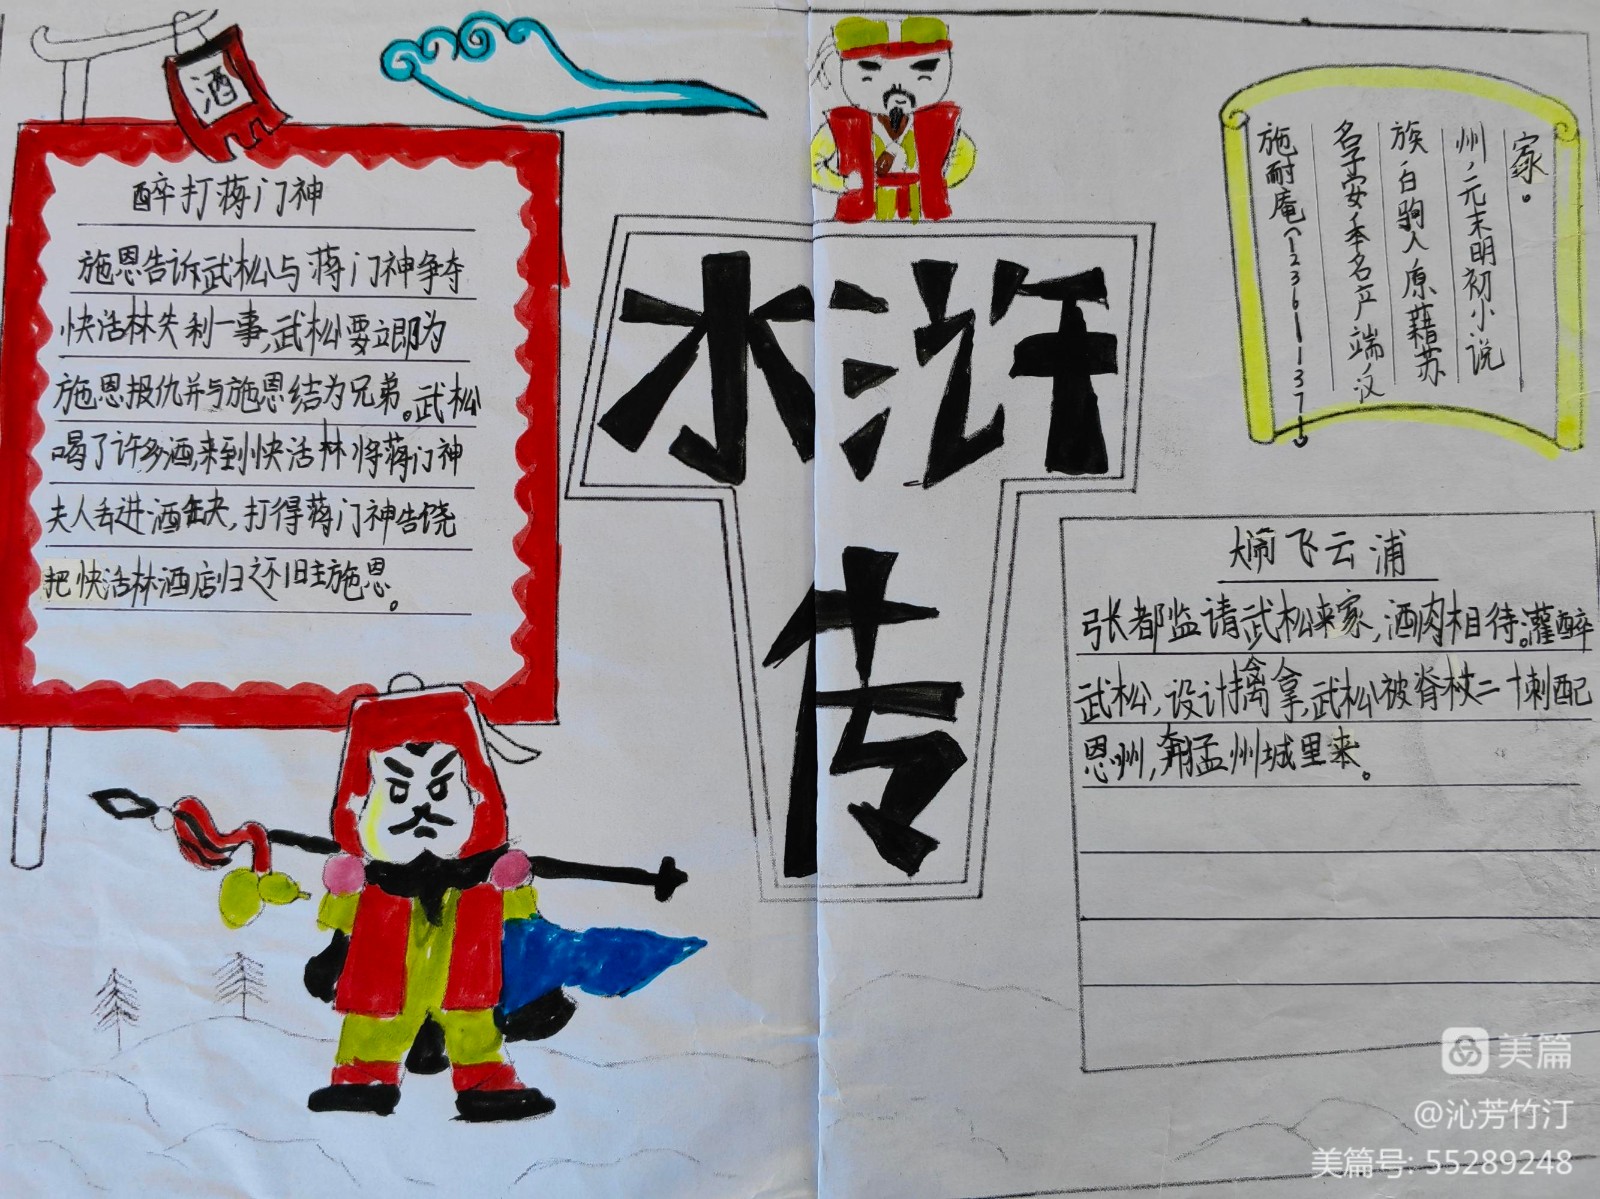 酒
醉打蒋门神
施恩告诉武松与蒋门神争夺
快活林失利一事,武松要立即为
施恩报仇并与施恩结为兄弟。武松
喝了许多酒,来到快活林将蒋门神
夫人丢进酒缺,打得蒋门神告饶
把快活林酒店归还旧主施恩。
水浒
传
施耐庵(1236|-137|)
名子安,本名产端,汉
族,白驹人原籍苏
州,元末明初小说
家。
大闹飞云浦
张都监请武松来家,酒肉相待。灌醉
武松,设计擒拿,武松被脊杖二十刺配
恩州,奔孟州城里来。
美篇
@沁芳竹汀
美篇号: 55289248